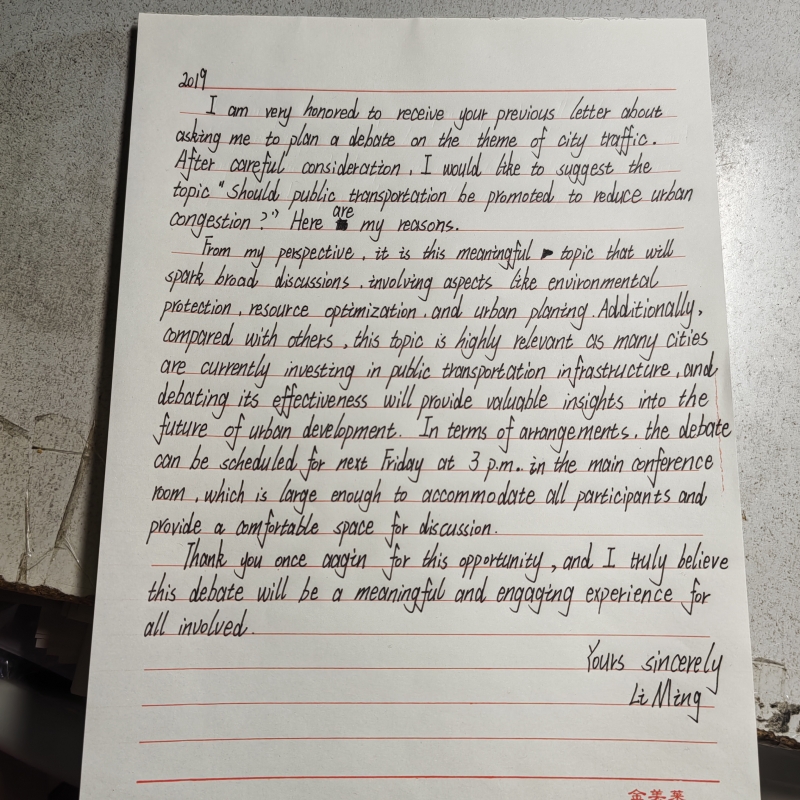 2019
I am very honored to receive your previous letter about
asking me to plan a debate on the theme of city traffic.
After careful consideration, I would like to suggest the
topic "Should public transportation be promoted to reduce urban
congestion?" Here are my reasons.
From my perspective, it is this meaningful topic that will
spark broad discussions, involving aspects like environmental
protection, resource optimization, and urban planing. Additionally,
compared with others, this topic is highly relevant as many cities
are currently investing in public transportation infrastructure, and
debating its effectiveness will provide valuable insights into the
future of urban development. In terms of arrangements, the debate
can be scheduled for next Friday at 3 p.m.. in the main conference
room, which is large enough to accommodate all participants and
provide a comfortable space for discussion.
Thank you once aagin for this opportunity, and I truly believe
this debate will be a meaningful and engaging experience for
all involved.
Yours sincerely
Li Ming
金美莱